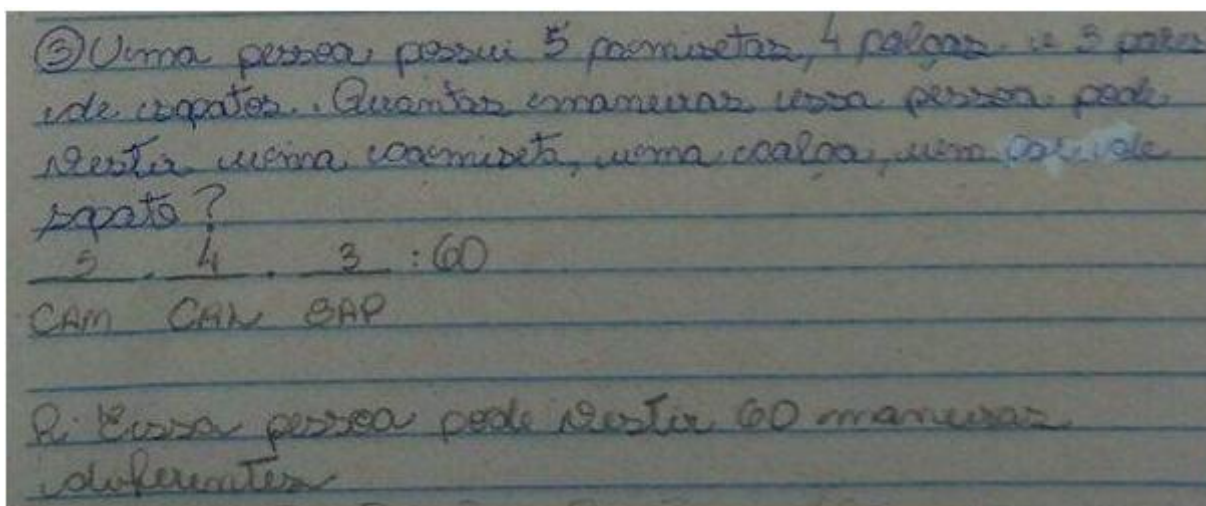 ③ Uma pessoa possui 5 camisetas, 4 calças e 3 pares
de sapatos. Quantas maneiras essa pessoa pode
vestir uma camiseta, uma calça, um par de
sapato?
5 . 4 . 3 : 60
CAM CAL SAP
R: Essa pessoa pode vestir 60 maneiras
diferentes